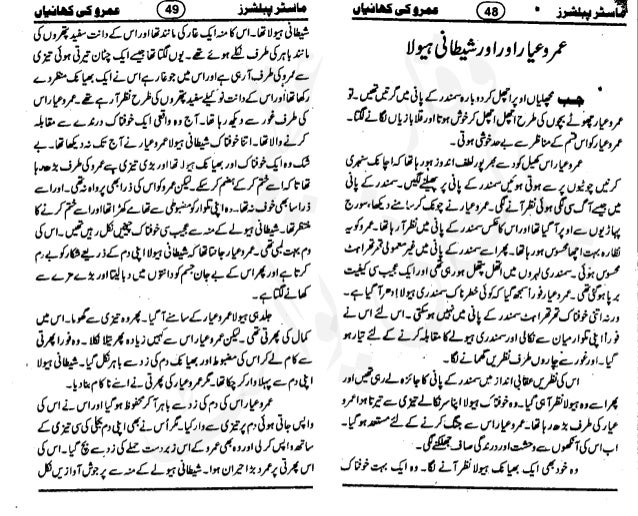 ماسٹر پبلشرز 48 عمرو کی کہانیاں
عمرو عیار اور اور شیطانی ہیولا
جب مچھلیاں اوپر اچھل کر دوبارہ سمندر کے پانی میں گرتیں تھیں۔ تو
عمرو عیار چھوٹے بچوں کی طرح اچھل اچھل کر خوش ہوتا اور قلابازیاں لگانے لگتا۔
عمرو کو اس قسم کے مناظر سے بے حد خوشی ہوتی۔
عمرو عیار اس کھیل کود سے بھرپور لطف اندوز ہو رہا تھا کہ اچانک سنہری
کرنیں چوٹیوں پر سے ہوتی ہوئیں سمندر کے پانی پر پھیلنے لگیں۔ سمندر کے پانی
میں جیسے آگ سی لگی ہوئی نظر آنے لگی۔ عمرو عیار نے چونک کر سامنے دیکھا، سورج
پہاڑیوں سے اوپر آ گیا تھا اور اس کا عکس سمندر کے پانی میں نظر آ رہا تھا۔ عمرو کو یہ
نظارہ بہت اچھا محسوس ہو رہا تھا۔ پھر اسے سمندر کے پانی میں غیر معمولی تھرتھراہٹ
محسوس ہوئی۔ سمندری لہروں میں اتھل پتھل ہو رہی تھی اور ایک عجیب سی کیفیت
برپا ہو گئی تھی۔ عمرو عیار فوراً سمجھ گیا کہ کوئی خطرناک سمندری ہیولا ادھر آ گیا ہے۔
ورنہ اتنی خوفناک تھرتھراہٹ سمندر کے پانی میں نہیں ہو سکتی۔ اس لئے اس نے
فوراً اپنی تلوار میان سے نکالی اور سمندری ہیولے کا مقابلہ کرنے کے لئے تیار ہو
گیا۔ اور غور سے چاروں طرف نظریں گھمانے لگا۔
اس کی نظریں عقابی انداز میں سمندر کے پانی کا جائزہ لے رہی تھیں اور
پھر اسے وہ ہیولا نظر آ ہی گیا۔ وہ خوفناک ہیولا اپنا سر نکالے تیزی سے تیرتا ہوا عمرو
عیار کی طرف بڑھ رہا تھا۔ عمرو عیار اس سے جنگ کرنے کے لئے مستعد ہو گیا۔
اب اس کی آنکھوں سے وحشت اور درندگی صاف جھلکنے لگی۔
وہ خود بھی ایک بھیانک ہیولا نظر آنے لگا۔ وہ ایک بہت خوفناک
ماسٹر پبلشرز 49 عمرو کی کہانیاں
شیطانی ہیولا تھا۔ اس کا منہ ایک غار کی مانند تھا اور اس کے دانت سفید پتھروں کی
مانند باہر کی طرف نکلے ہوئے تھے۔ یوں لگتا تھا جیسے ایک چٹان تیرتی ہوئی تیزی
سے عمرو کی طرف آ رہی ہے اور اس میں جو غار ہے اس نے ایک بھیانک منظر دے
رکھا تھا اور اس کے دانت نوکیلے سفید پتھروں کی طرح نظر آ رہے تھے۔ عمرو عیار اس
کی طرف غور سے دیکھ رہا تھا۔ آج وہ واقعی ایک خوفناک درندے سے مقابلہ
کرنے والا تھا۔ اتنا خوفناک شیطانی ہیولا عمرو عیار نے آج تک نہ دیکھا تھا۔ بے
شک وہ ایک خوفناک اور بھیانک ہیولا تھا اور بڑی تیزی سے عمرو کی طرف بڑھ رہا
تھا تاکہ اسے ختم کر کے ہضم کر سکے۔ لیکن عمرو کو اس کی ذرا بھی پرواہ نہ تھی۔ اور اسے
ذرا سا بھی خوف نہ تھا۔ وہ اپنی تلوار کو مضبوطی سے تھامے کھڑا تھا اور اسے ختم کرنے کا
منتظر تھا۔ شیطانی ہیولے کے منہ سے عجیب سی خوفناک چیخیں نکل رہیں تھیں۔ اس کی
دم بہت لمبی تھی۔ عمرو عیار جانتا تھا کہ شیطانی ہیولا اپنی دم کے ذریعے شکار کو بے دم
کرتا ہے اور پھر اس کے بے جان جسم کو دانتوں میں دبا لیتا اور بڑے مزے سے
کھانے لگتا ہے۔
جلد ہی ہیولا عمرو عیار کے سامنے آ گیا۔ پھر وہ تیزی سے گھوما۔ اس میں
کمال کی پھرتی تھی۔ لیکن عمرو عیار اس سے کہیں زیادہ پھرتیلا نکلا۔ وہ فوراً پھرتی
سے کام لے کر اس کی مضبوط اور بھیانک دم کی زد سے باہر نکل گیا۔ شیطانی ہیولا
اپنی دم سے پہلا وار کر چکا تھا۔ مگر عمرو عیار کی پھرتی نے اسے ناکام بنا دیا۔
عمرو عیار اس کی دم کی زد سے باہر آ کر محفوظ ہو گیا اور اس نے اس کی
واپس جاتی ہوئی دم پر تیزی سے وار کیا۔ مگر اس نے بھی اپنی دم بجلی کی سی تیزی کے
ساتھ واپس کر لی اور وہ بھی عمرو کے اس زبردست حملے کی زد سے بچ گیا۔ اس کی
اس پھرتی پر عمرو بڑا حیران ہوا۔ شیطانی ہیولے کے منہ سے پرجوش آوازیں نکل